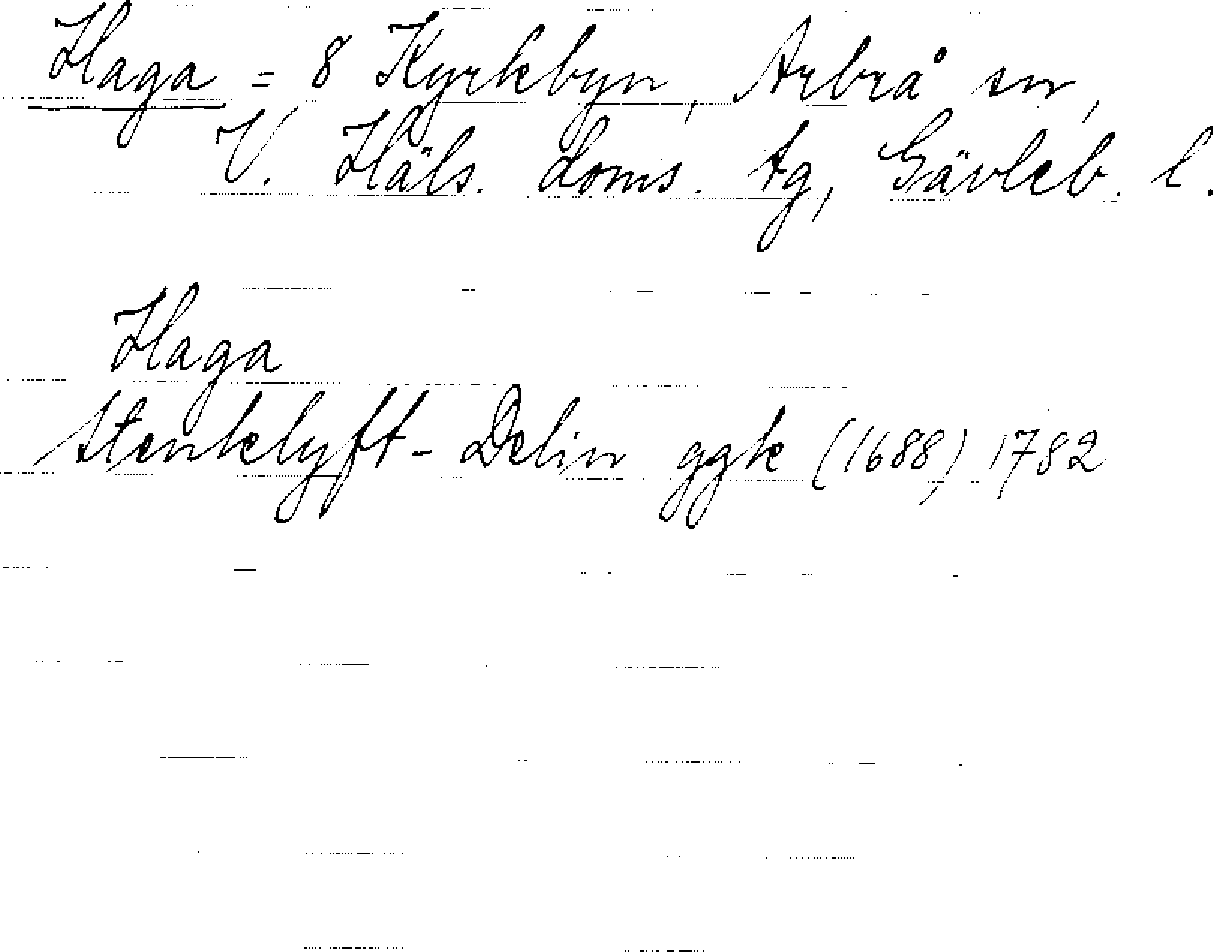 Haga = 8 Kyrkbyn, Arbrå sn,
V. Häls. doms. tg, Gävleb. l.
Haga
Stenklyft - Delin ggk (1688) 1782